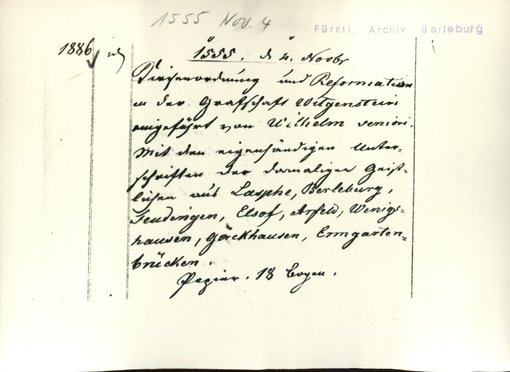 1555 Nov. 4
Fürstl. Archiv Berleburg
1886
1555. d 4. Novbr
Kirchenordnung und Reformation
in der Grafschaft Witgenstein
eingeführt von Wilhelm seniori.
Mit den eigenhändigen Unter-
schriften der damaligen Geist-
lichen aus Laasphe, Berleburg,
Feudingen, Elsof, Arfeld, Wenigs-
hausen, Göckhausen, Ermgarten-
brücken.
Papier. 18 Bogen.